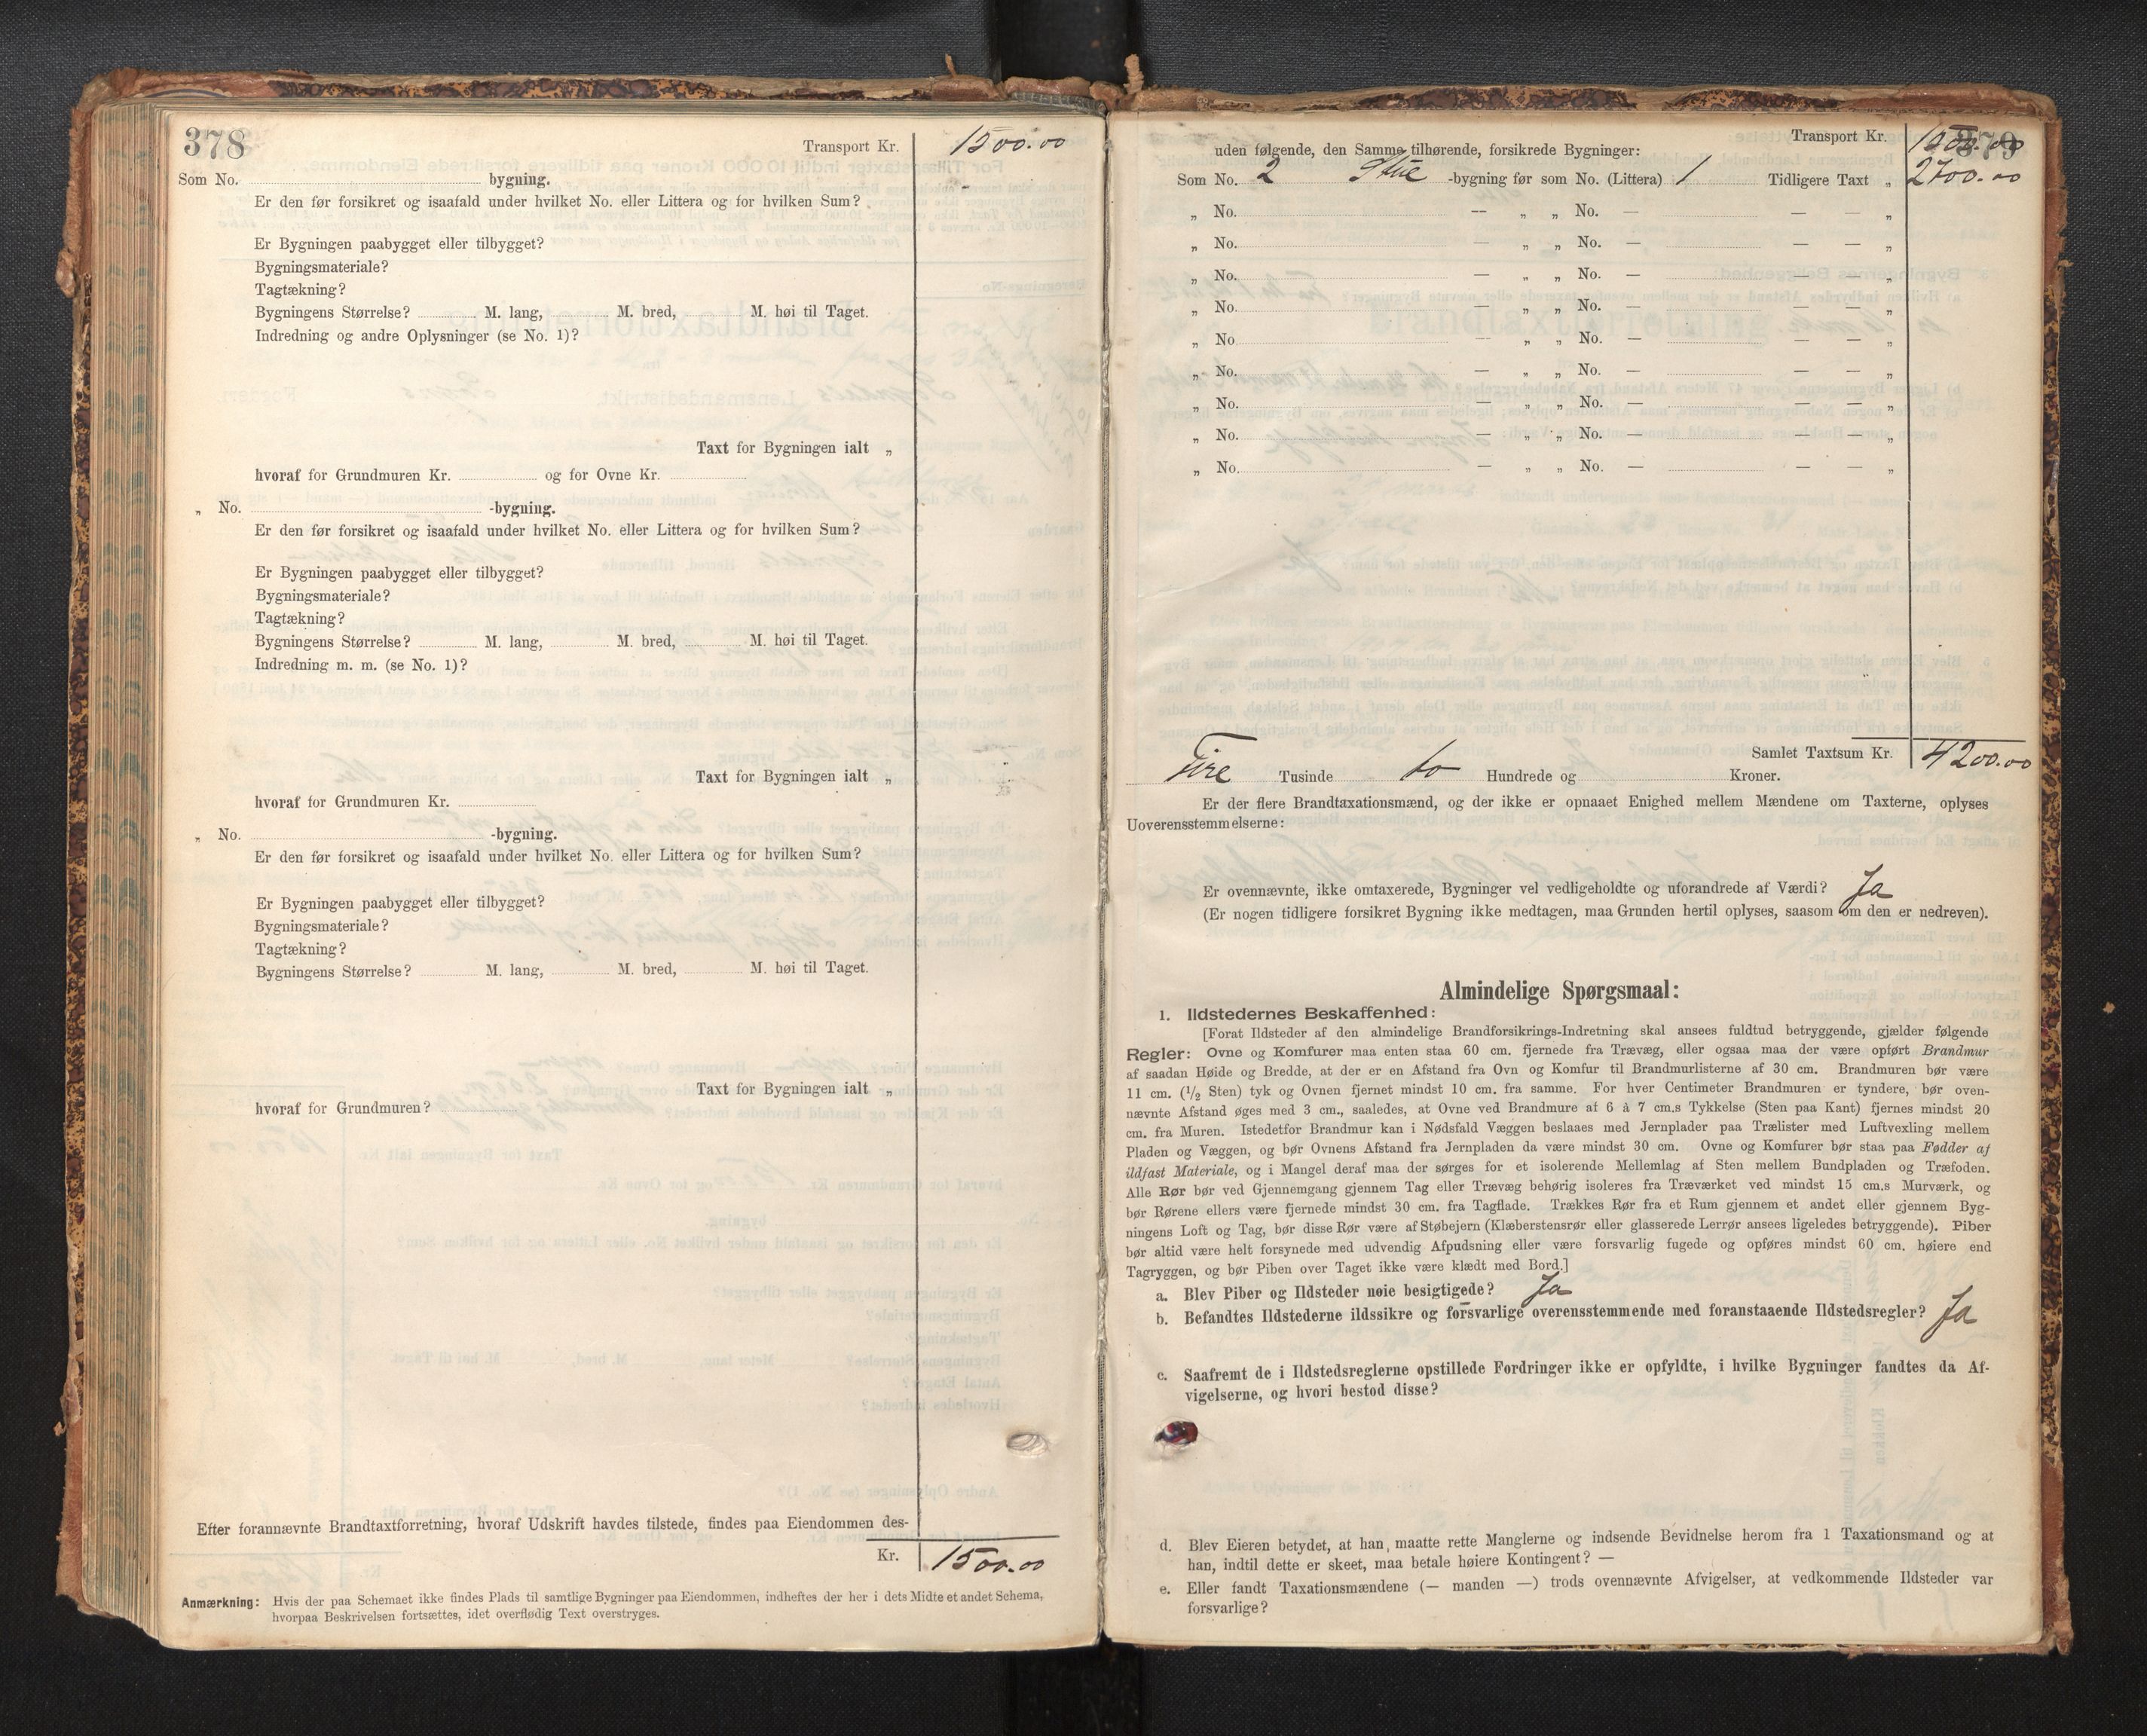 378
Transport Kr. 1500.00
Som No. bygning.
Er den før forsikret og isaafald under hvilket No. eller Littera og for hvilken Sum?
Er Bygningen paabygget eller tilbygget?
Bygningsmateriale?
Tagtækning?
Bygningens Størrelse? M. lang, M. bred, M. høi til Taget.
Indredning og andre Oplysninger (se No. 1)?
Taxt for Bygningen ialt „
hvoraf for Grundmuren Kr. og for Ovne Kr.
„ No. -bygning.
Er den før forsikret og isaafald under hvilket No. eller Littera og for hvilken Sum?
Er Bygningen paabygget eller tilbygget?
Bygningsmateriale?
Tagtækning?
Bygningens Størrelse? M. lang, M. bred, M. høi til Taget.
Indredning m. m. (se No. 1)?
Taxt for Bygningen ialt „
hvoraf for Grundmuren Kr.
„ No. -bygning.
Er den før forsikret og isaafald under hvilket No. eller Littera og for hvilken Sum?
Er Bygningen paabygget eller tilbygget?
Bygningsmateriale?
Tagtækning?
Bygningens Størrelse? M. lang, M. bred, M. høi til Taget.
Taxt for Bygningen ialt „
hvoraf for Grundmuren?
Efter forannævnte Brandtaxtforretning, hvoraf Udskrift havdes tilstede, findes paa Eiendommen des-
Kr. 1500.00
Anmærkning: Hvis der paa Schemaet ikke findes Plads til samtlige Bygninger paa Eiendommen, indheftes der her i dets Midte et andet Schema,
hvorpaa Beskrivelsen fortsættes, idet overflødig Text overstryges.
379
Transport Kr. 1500.00
uden følgende, den Samme tilhørende, forsikrede Bygninger:
Som No. 2 Stue -bygning før som No. (Littera) 1 Tidligere Taxt „ 2700.00
„ No. — „ „ No. — — — „
„ No. — „ „ No. — — — „
„ No. — „ „ No. — — — „
„ No. — „ „ No. — — — „
„ No. — „ „ No. — — — „
„ No. — „ „ No. — — — „
„ No. — „ „ No. — — — „
„ No. — „ „ No. — — — „
„ No. — „ „ No. — — — „
Samlet Taxtsum Kr. 4200.00
Fire Tusinde to Hundrede og Kroner.
Er der flere Brandtaxationsmænd, og der ikke er opnaaet Enighed mellem Mændene om Taxterne, oplyses
Uoverensstemmelserne:
Er ovennævnte, ikke omtaxerede, Bygninger vel vedligeholdte og uforandrede af Værdi? Ja
(Er nogen tidligere forsikret Bygning ikke medtagen, maa Grunden hertil oplyses, saasom om den er nedreven).
Almindelige Spørgsmaal:
1. Ildstedernes Beskaffenhed:
[Forat Ildsteder af den almindelige Brandforsikrings-Indretning skal ansees fuldtud betryggende, gjælder følgende
Regler: Ovne og Komfurer maa enten staa 60 cm. fjernede fra Trævæg, eller ogsaa maa der være opført Brandmur
af saadan Høide og Bredde, at der er en Afstand fra Ovn og Komfur til Brandmurlisterne af 30 cm. Brandmuren bør være
11 cm. (1/2 Sten) tyk og Ovnen fjernet mindst 10 cm. fra samme. For hver Centimeter Brandmuren er tyndere, bør oven-
nævnte Afstand øges med 3 cm., saaledes, at Ovne ved Brandmure af 6 à 7 cm.s Tykkelse (Sten paa Kant) fjernes mindst 20
cm. fra Muren. Istedetfor Brandmur kan i Nødsfald Væggen beslaaes med Jernplader paa Trælister med Luftvexling mellem
Pladen og Væggen, og bør Ovnens Afstand fra Jernpladen da være mindst 30 cm. Ovne og Komfurer bør staa paa Fødder af
ildfast Materiale, og i Mangel deraf maa der sørges for et isolerende Mellemlag af Sten mellem Bundpladen og Træfoden.
Alle Rør bør ved Gjennemgang gjennem Tag eller Trævæg behørig isoleres fra Træværket ved mindst 15 cm.s Murværk, og
bør Rørene ellers være fjernede mindst 30 cm. fra Tagflade. Trækkes Rør fra et Rum gjennem et andet eller gjennem Byg-
ningens Loft og Tag, bør disse Rør være af Støbejern (Klæberstensrør eller glasserede Lerrør ansees ligeledes betryggende). Piber
bør altid være helt forsynede med udvendig Afpudsning eller være forsvarlig fugede og opføres mindst 60 cm. høiere end
Tagryggen, og bør Piben over Taget ikke være klædt med Bord.]
a. Blev Piber og Ildsteder nøie besigtigede? Ja
b. Befandtes Ildstederne ildssikre og forsvarlige overensstemmende med foranstaaende Ildstedsregler? Ja
c. Saafremt de i Ildstedsreglerne opstillede Fordringer ikke er opfyldte, i hvilke Bygninger fandtes da Af-
vigelserne, og hvori bestod disse?
d. Blev Eieren betydet, at han maatte rette Manglerne og indsende Bevidnelse herom fra 1 Taxationsmand og at
han, indtil dette er skeet, maa betale høiere Kontingent? —
e. Eller fandt Taxationsmændene (— manden —) trods ovennævnte Afvigelser, at vedkommende Ildsteder var
forsvarlige?